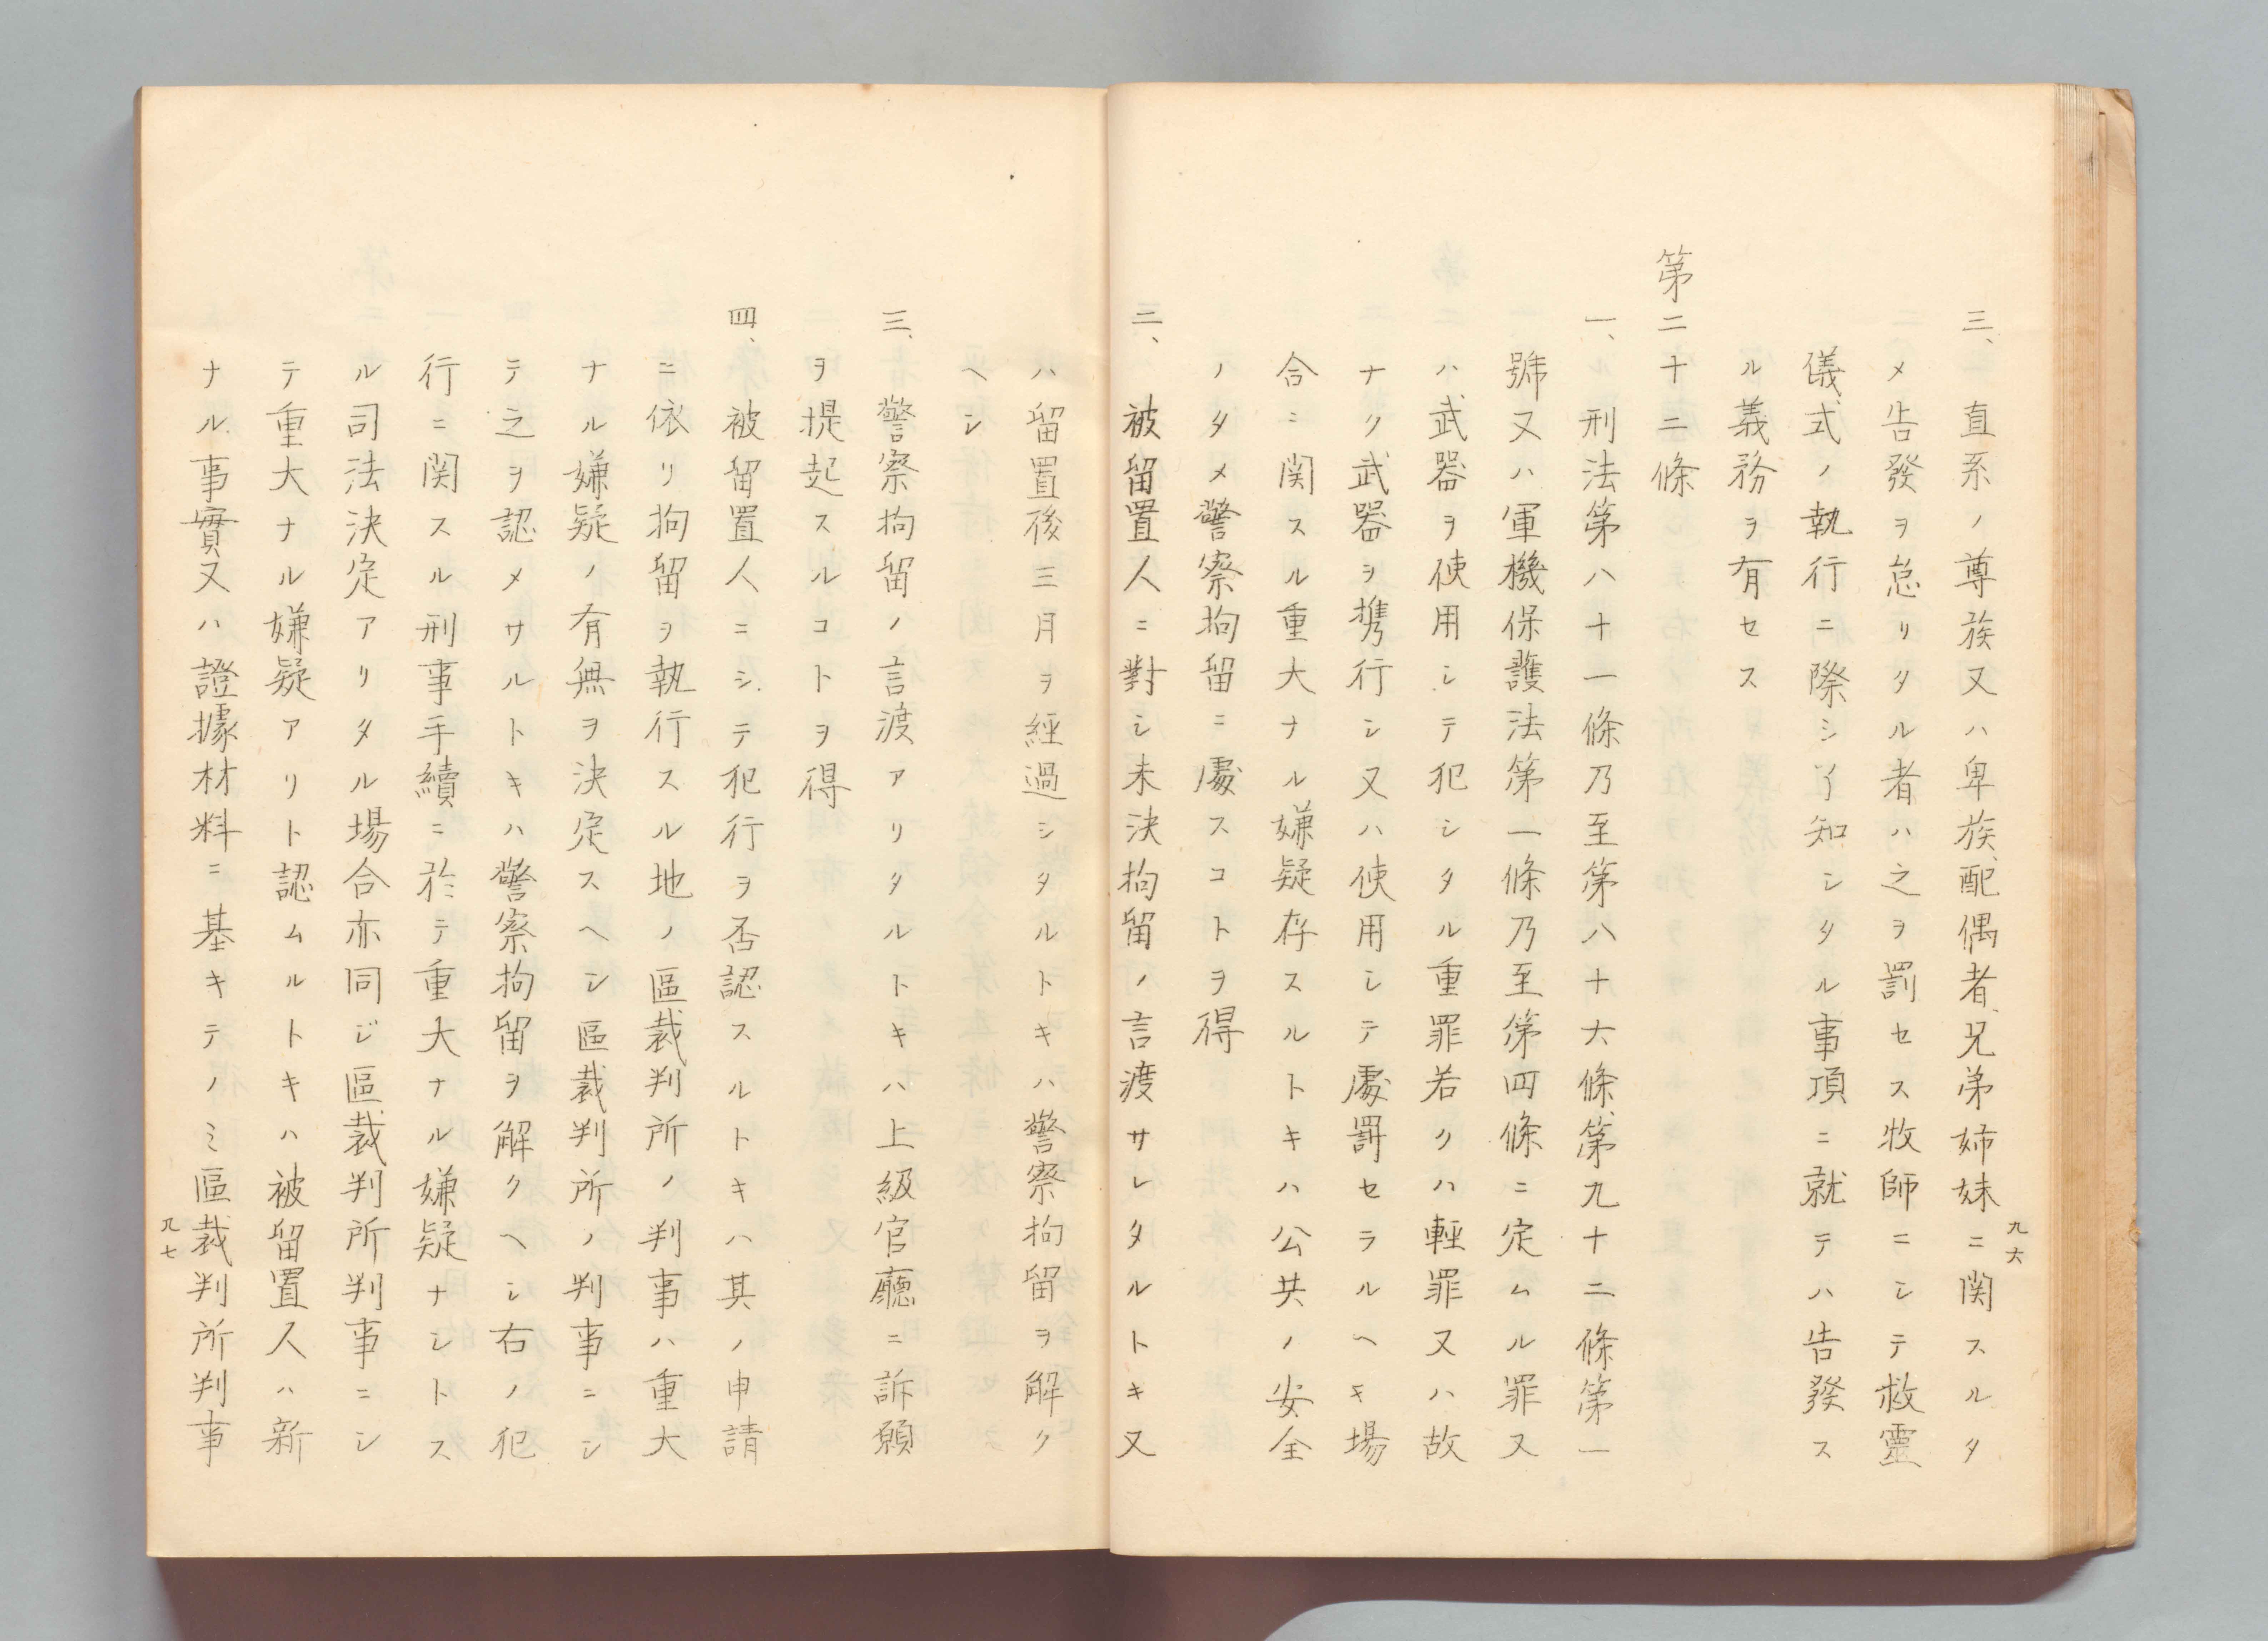 三、直系ノ尊族又ハ卑族、配偶者、兄弟姉妹ニ関スルタ
メ告發ヲ怠リタル者ハ之ヲ罰セス牧師ニシテ救靈
儀式ノ執行ニ際シ了知シタル事項ニ就テハ告發ス
ル義務ヲ有セス
第二十二條
一、刑法第八十一條乃至第八十六條、第九十二條第一
號又ハ軍機保護法第一條乃至第四條ニ定ムル罪又
ハ武器ヲ使用シテ犯シタル重罪若クハ輕罪又ハ故
ナク武器ヲ携行シ又ハ使用シテ處罰セラルヘキ場
合ニ関スル重大ナル嫌疑存スルトキハ公共ノ安全
ノタメ警察拘留ニ處スコトヲ得
二、被留置人ニ對シ未決拘留ノ言渡サレタルトキ又
九六
ハ留置後三月ヲ経過シタルトキハ警察拘留ヲ解ク
ヘシ
三、警察拘留ノ言渡アリタルトキハ上級官廳ニ訴願
ヲ提起スルコトヲ得
四、被留置人ニシテ犯行ヲ否認スルトキハ其ノ申請
ニ依リ拘留ヲ執行スル地ノ區裁判所ノ判事ハ重大
ナル嫌疑ノ有無ヲ決定スヘシ區裁判所ノ判事ニシ
テ之ヲ認メサルトキハ警察拘留ヲ解クヘシ右ノ犯
行ニ関スル刑事手續ニ於テ重大ナル嫌疑ナシトス
ル司法決定アリタル場合亦同ジ區裁判所判事ニシ
テ重大ナル嫌疑アリト認ムルトキハ被留置人ハ新
ナル事實又ハ證據材料ニ基キテノミ區裁判所判事
九七